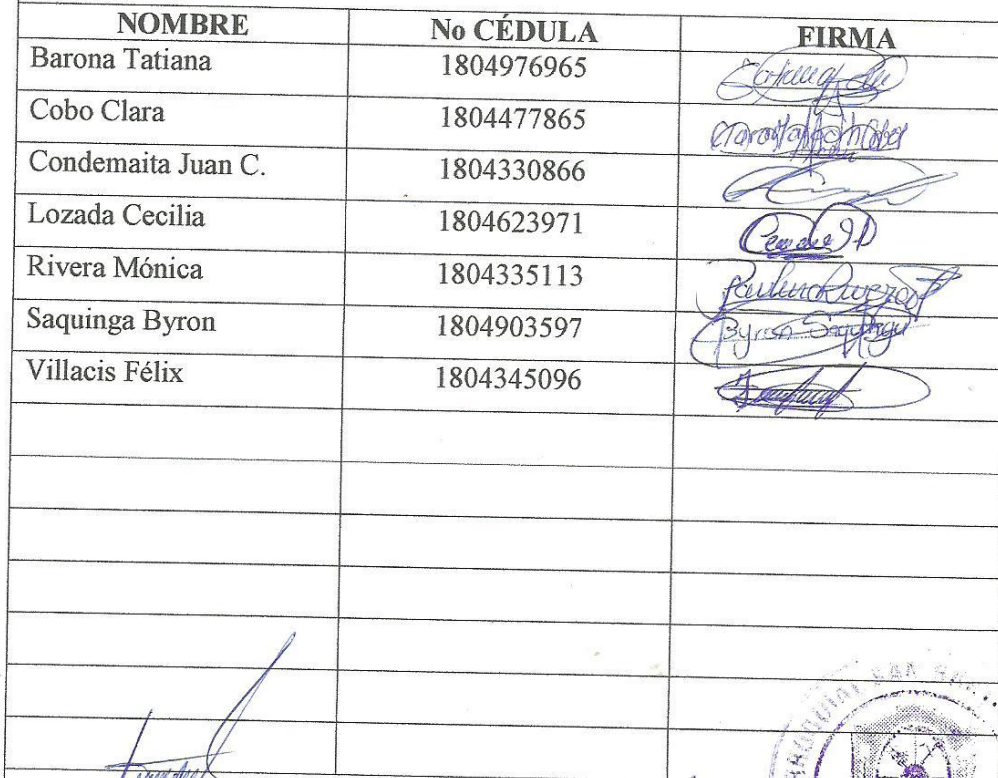 NOMBRE No CÉDULA FIRMA
Barona Tatiana 1804976965
Cobo Clara 1804477865
Condemaita Juan C. 1804330866
Lozada Cecilia 1804623971
Rivera Mónica 1804335113
Saquinga Byron 1804903597 Byron Saquinga
Villacis Félix 1804345096